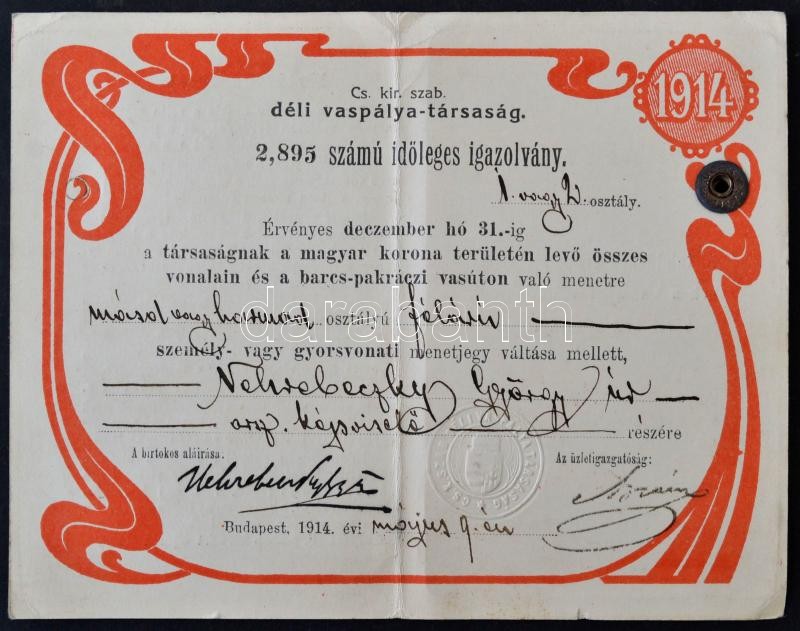 Cs. kir. szab.
déli vaspálya-társaság.
1914
2,895 számú időleges igazolvány.
1. vagy 2. osztály.
Érvényes deczember hó 31.-ig
a társaságnak a magyar korona területén levő összes
vonalain és a barcs-pakráczi vasúton való menetre
másod vagy harmad osztályú félárú
személy- vagy gyorsvonati menetjegy váltása mellett,
Nehrebeczky György úr
orsz. képviselő részére
A birtokos aláirása:
Az üzletigazgatóság:
Budapest, 1914. évi május 9.én
darabanth